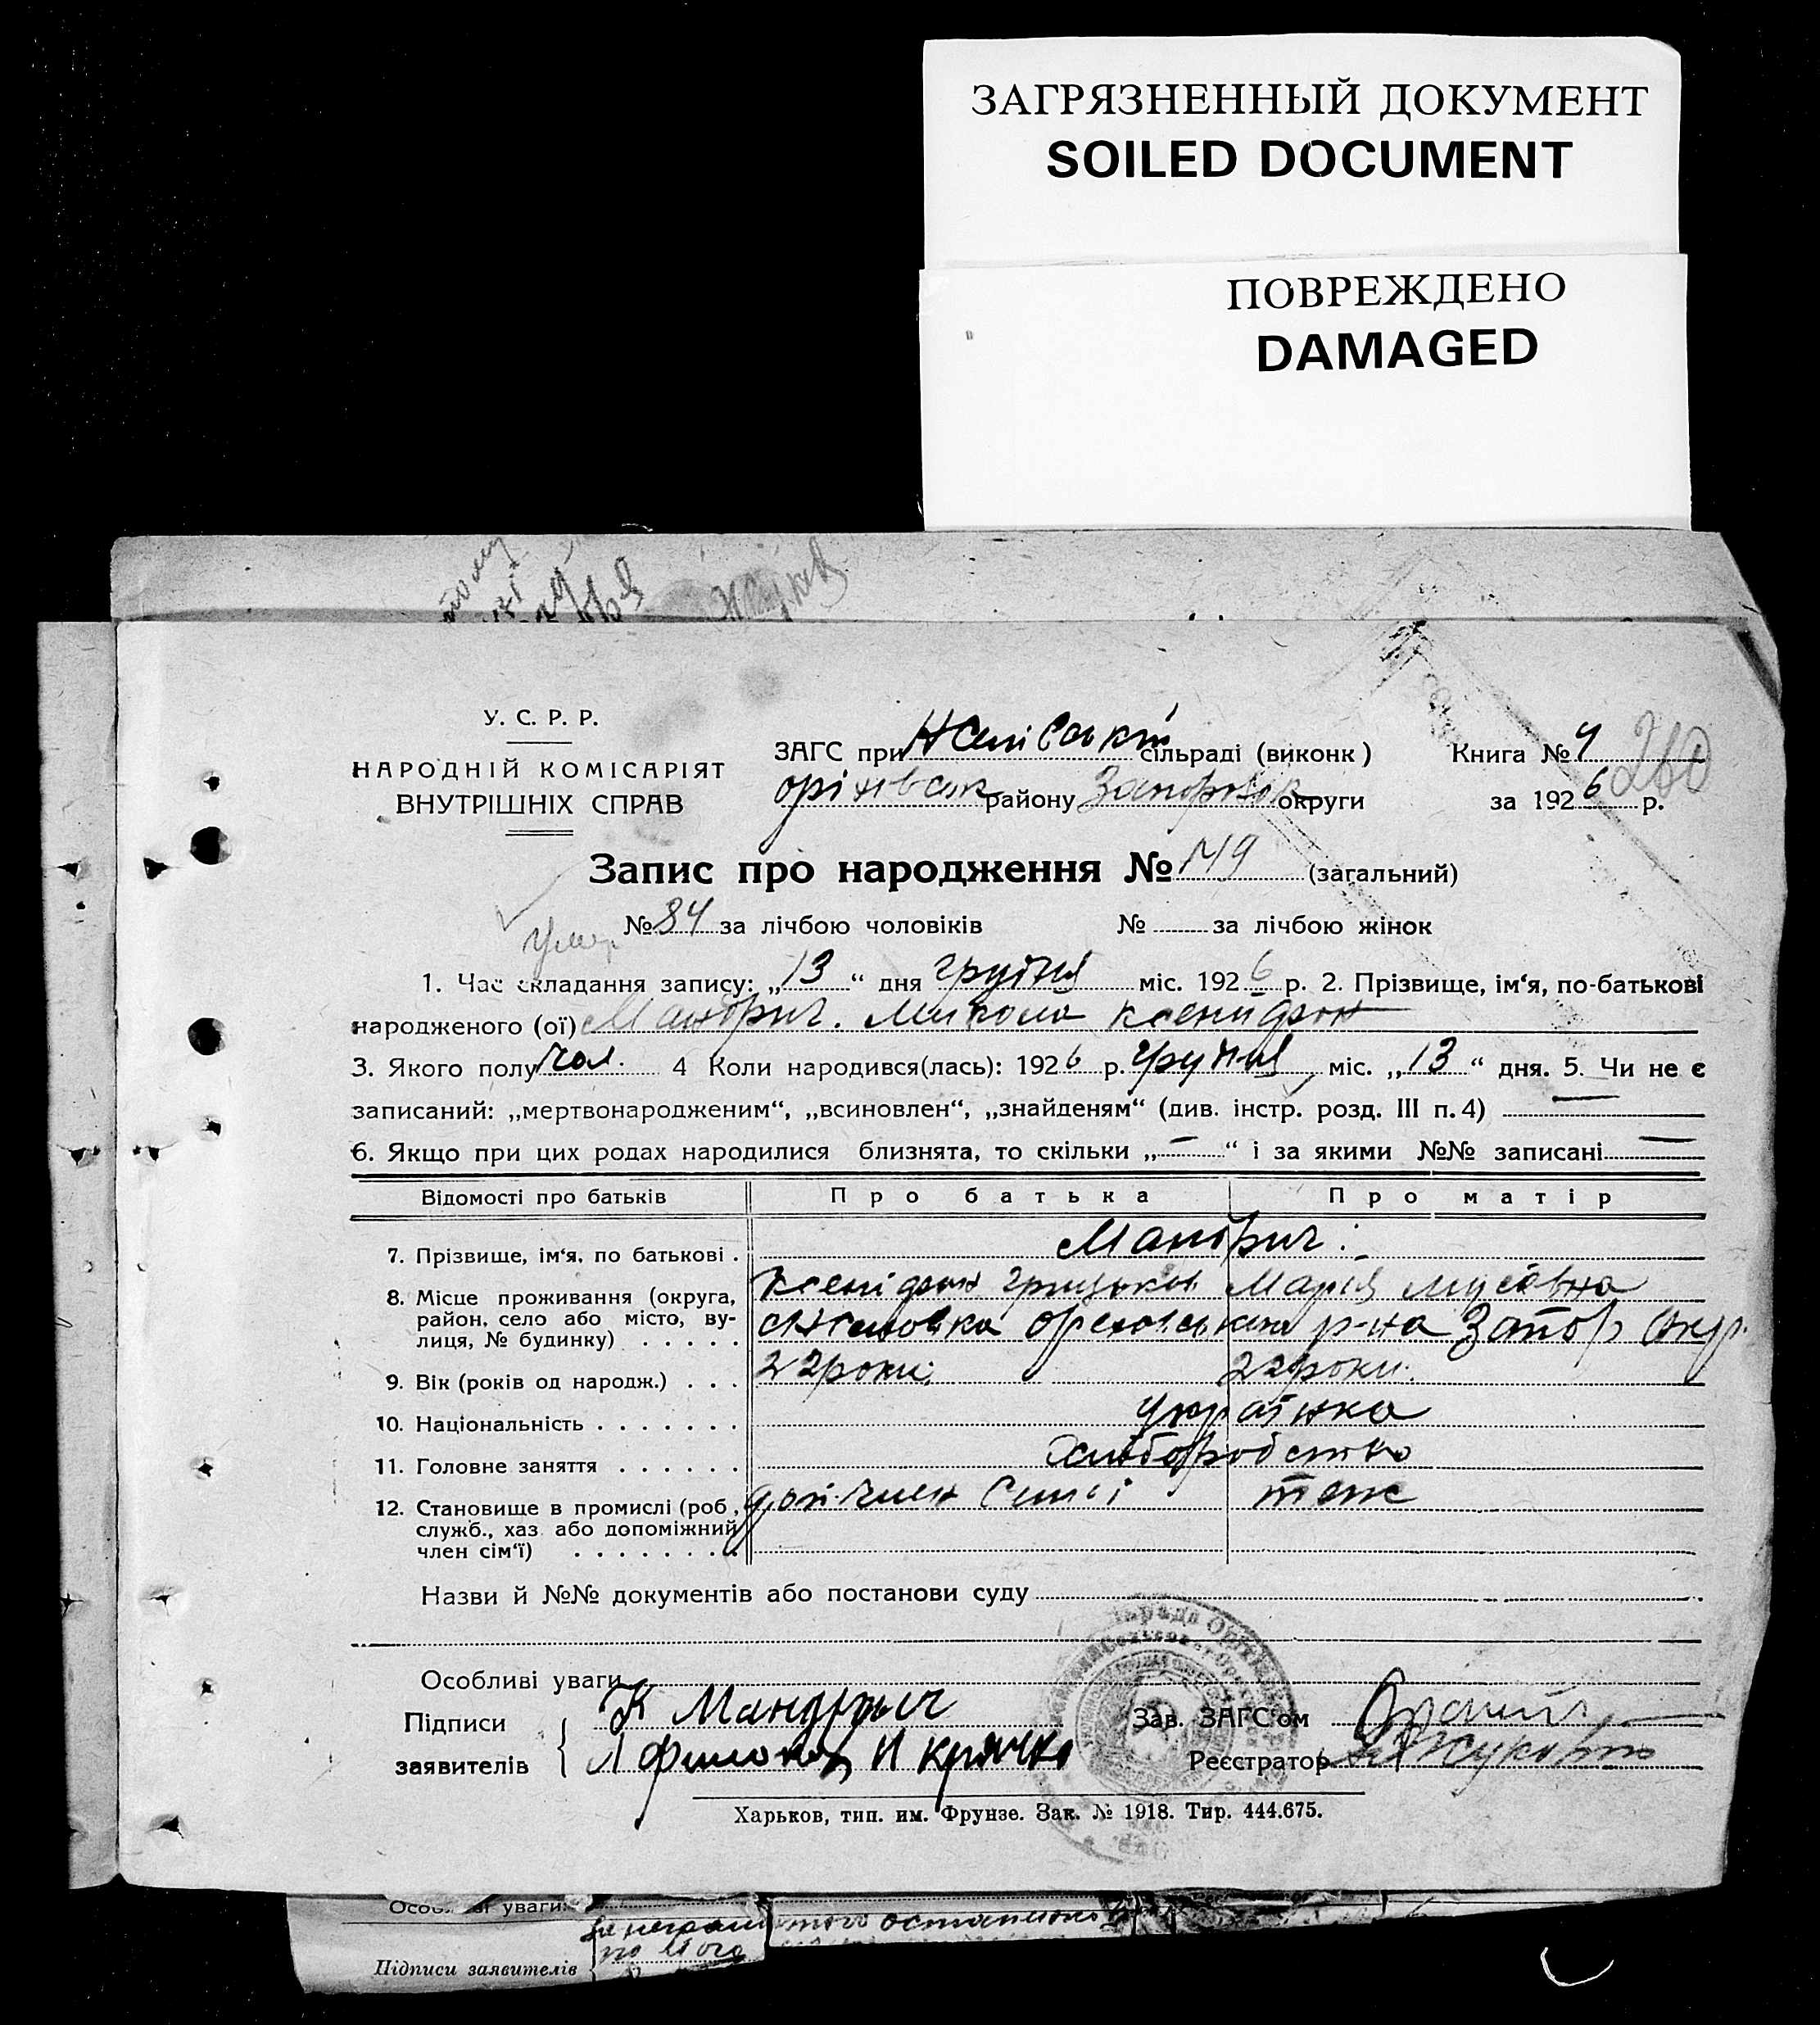 ЗАГРЯЗНЕННЫЙ ДОКУМЕНТ
SOILED DOCUMENT
ПОВРЕЖДЕНО
DAMAGED
У. С. Р. Р.
НАРОДНІЙ КОМІСАРІЯТ
ВНУТРІШНІХ СПРАВ
ЗАГС при сільраді (виконк)
району Запорізьк округи
Книга № 4
за 1926 р.
Запис про народження № 149 (загальний)
№ 84 за лічбою чоловіків № за лічбою жінок
умер
1. Час складання запису: „13“ дня грудня міс. 1926 р. 2. Прізвище, ім‘я, по-батькові
народженого (ої) Мандрич. Микола Ксенифон
3. Якого полу чол. 4 Коли народився(лась): 1926 р. грудня міс. „13“ дня. 5. Чи не є
записаний: „мертвонародженим“, „всиновлен“, „знайденям“ (див. інстр. розд. III п. 4)
6. Якщо при цих родах народилися близнята, то скільки „—“ і за якими №№ записані —
Відомості про батьків Про батька Про матір
7. Прізвище, ім‘я, по батькові . Мандрич.
Ксенифон Грицьков Марія Мусівна
8. Місце проживання (округа,
район, село або місто, ву-
лиця, № будинку) . . . . . р-на Запор Окр.
9. Вік (років од народж.) . . . 22 роки. 22 роки.
10. Національність . . . . . . . українка
11. Головне заняття . . . . . . хліборобство
12. Становище в промислі (роб.,
служб., хаз. або допоміжний
член сім‘ї) . . . . . . . . доп. член сим'ї теж
Назви й №№ документів або постанови суду
Особливі уваги
Підписи
заявителів
К Мандрыч
И Крячко
Зав. ЗАГС‘ом
Реєстратор
Харьков, тип. им. Фрунзе. Зак. № 1918. Тир. 444.675.
Особливі уваги
Підписи заявителів